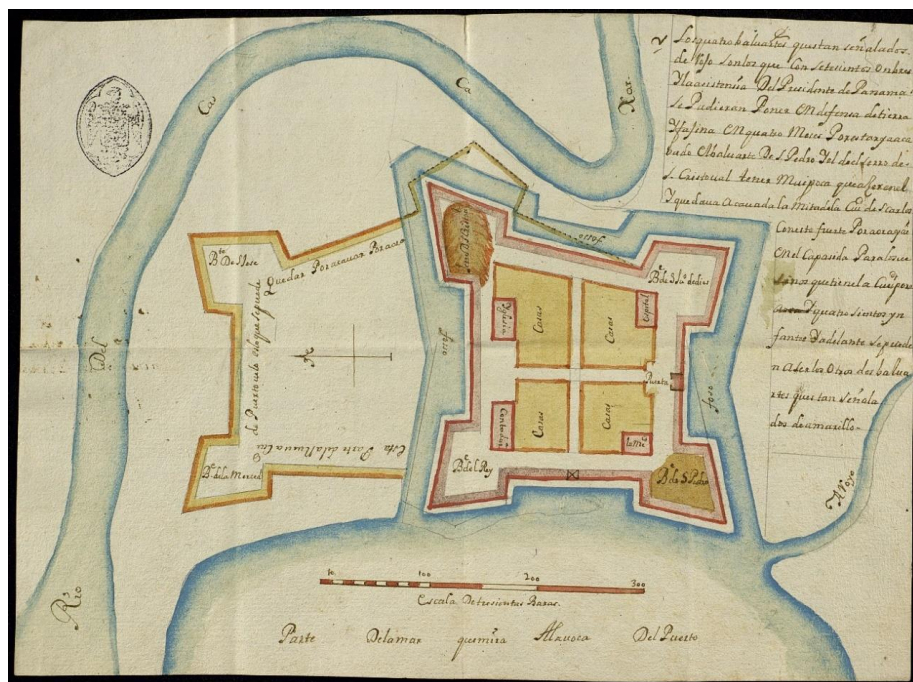 Los quatro baluartes questan señalados
de Rojo son los que Con setesientos onbres
Y la asistensia Del Presidente de Panama
Se Pudieran Poner En defensa de tierra
Y fajina En quatro Meses Por estar ya aca
bado El baluarte De S. Pedro Y el del serro de
S. Cristoual tener Mui poca que aserenel
Y quedaua Acauada la Mitad de la Ciu de S. Carlos
Con este fuerte Por aora que
En el Capaseda Para los ve
sinos que tiene la Cui y por
quatro sientos yn
fantes Y adelante se puede
n Aser los Otros dos balua
rtes questan señala
dos de amarillo
Rio
Del
Cas
Ca
Xar.
Bte De S. Jose
Quedar Por acauar Por aora
de Puertouelo es lo que se puede
Esta Parte de la Nueua Ciu
Be de la Merced
foso
foso
foso
Be de Sta.
Yglesia
Casas
Casas
ospital
Puerta
Contadu
Casas
Casas
Be del Rey
Be de S. Pedro
Arroyo
10 100 200 300
Escala De tresientas Baras.
Parte De la mar que mira Ala voca Del Puerto